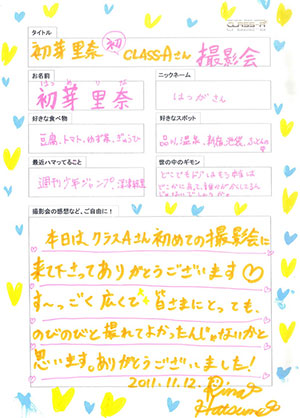 CLASS-A
タイトル
初芽里奈 初 CLASS-Aさん 撮影会
お名前
ニックネーム
はつめ りな
初芽 里奈
はつがさん
好きな食べ物
好きなスポット
豆腐、トマト、ゆず茶、ぎゅうひ
温泉、新宿、池袋、ふとんの
最近ハマってること
世の中のギモン
週刊少年ジャンプ
どこでもドアは
撮影会の感想など、ご自由に!
本日は、クラスAさん初めての撮影会に
来て下さってありがとうございます♡
す〜っごく広くて 皆さまにとっても、
のびのびと撮れてよかったんじゃないかと
思います。ありがとうございました!
2011.11.12. Rina
Hatsume